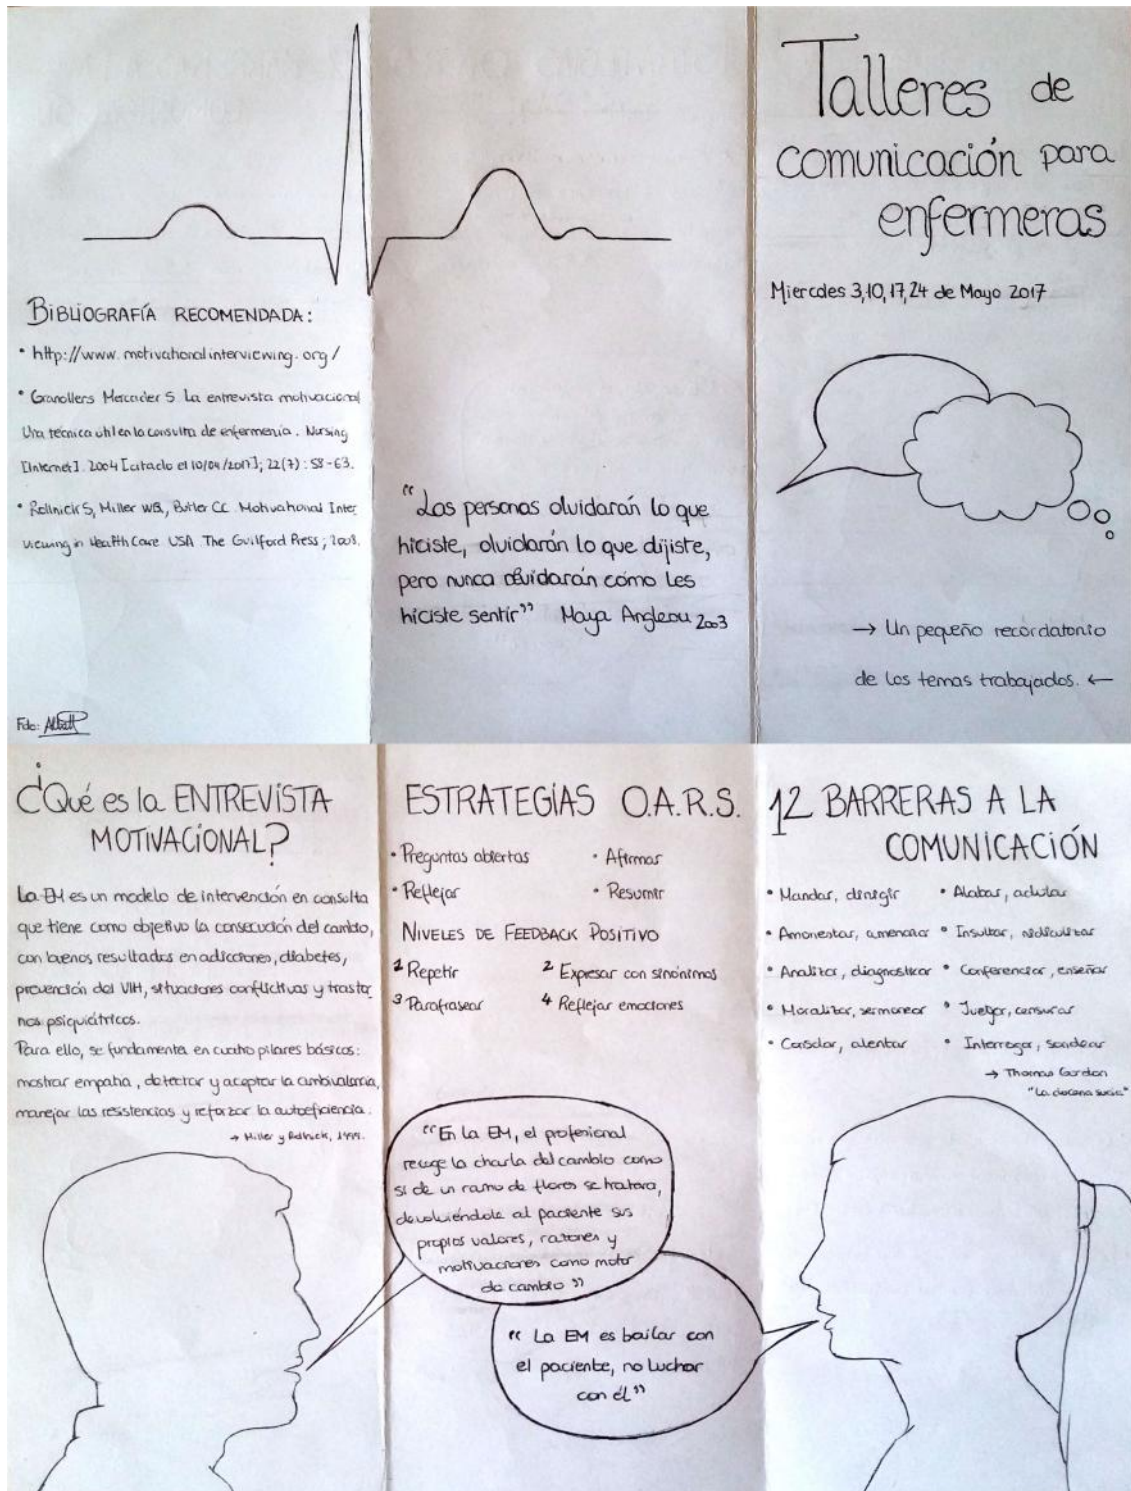 BIBLIOGRAFÍA RECOMENDADA:
• http://www.motivationalinterviewing.org/
• Granollers Mercader S. La entrevista motivacional
Una técnica útil en la consulta de enfermería. Nursing
[Internet]. 2004 [citado el 10/04/2017]; 22(7): 58-63.
• Rollnick S, Miller WR, Butler CC. Motivational Inter
viewing in Health Care USA The Guilford Press; 2008.
Fdo:
“Las personas olvidarán lo que
hiciste, olvidarán lo que dijiste,
pero nunca olvidarán cómo les
hiciste sentir” Maya Angleou 2003
Talleres de
comunicación para
enfermeras
Miercoles 3,10,17,24 de Mayo 2017
→ Un pequeño recordatorio
de los temas trabajados. ←
¿Qué es la ENTREVISTA
MOTIVACIONAL?
La EM es un modelo de intervención en consulta
que tiene como objetivo la consecución del cambio,
con buenos resultados en adicciones, diabetes,
prevención del VIH, situaciones conflictivas y trastor
nos psiquiátricos.
Para ello, se fundamenta en cuatro pilares básicos:
mostrar empatía, detectar y aceptar la ambivalencia,
manejar las resistencias y reforzar la autoeficiencia.
→ Miller y Rollnick, 1999.
ESTRATEGIAS O.A.R.S.
• Preguntas abiertas • Afirmar
• Reflejar • Resumir
NIVELES DE FEEDBACK POSITIVO
1 Repetir 2 Expresar con sinónimos
3 Parafrasear 4 Reflejar emociones
“En la EM, el profesional
recoge la charla del cambio como
si de un ramo de flores se tratara,
devolviéndole al paciente sus
propios valores, razones y
motivaciones como motor
de cambio”
“La EM es bailar con
el paciente, no luchar
con él”
12 BARRERAS A LA
COMUNICACIÓN
• Mandar, dirigir • Alabar, adular
• Amonestar, amenazar • Insultar, ridiculizar
• Analizar, diagnosticar • Conferenciar, enseñar
• Moralizar, sermonear • Juzgar, censurar
• Consolar, alentar • Interrogar, sondear
→ Thomas Gordon
"La docena sucia"